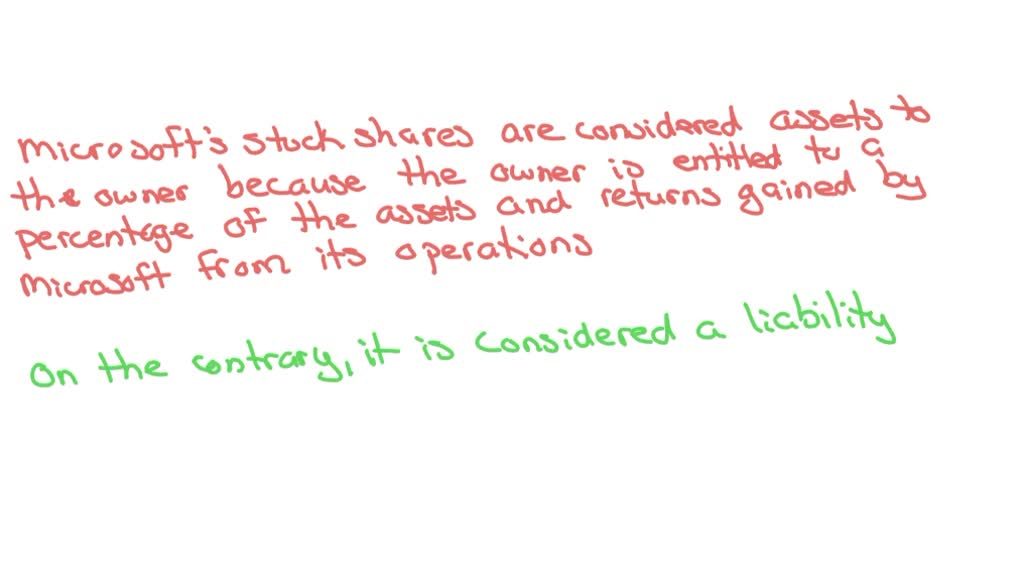 Microsoft's stock shares are considered assets to
the owner because the owner is entitled to a
percentage of the assets and returns gained by
Microsoft from its operations
On the contrary, it is considered a liability